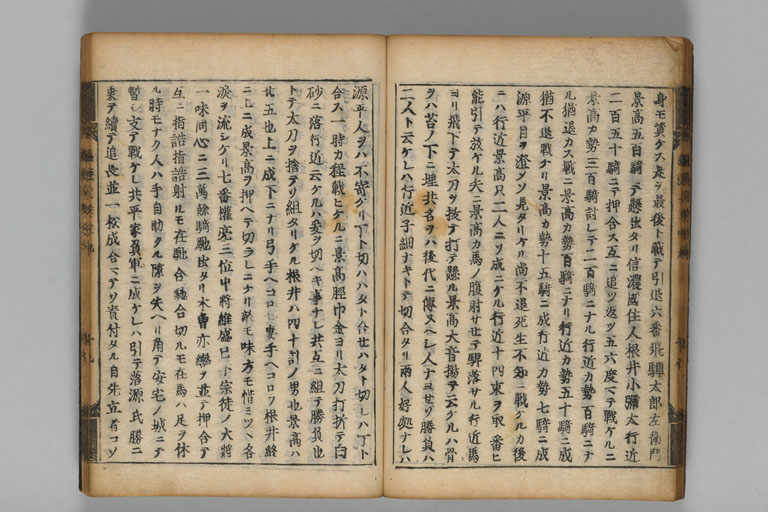 身モ賛クス是ヲ最後ト戦テ引退六番飛騨太郎左衛門
景高五百騎ニテ懸出タリ信濃國住人根井小彌太行近
二百五十騎ニテ押合ス互ニ追ツ返ツ五六度マテ戦ケルニ
景高カ勢三百騎討レテ二百騎ニナル行近カ勢百騎ニナ
ル猶退カス戦ニ景高カ勢百騎ニナリ行近カ勢五十騎ニ成
猶不退戦ケリ景高カ勢十五騎ニ成行近カ勢七騎ニ成
源平目ヲ澄メソ見タリケル尚不退死生不知ニ戦ケルカ後
ニハ行近景高只二人ニソ成ニケル行近十四束ヲ取番ヒ
能引テ放ケル矢ニ景高カ馬ノ腹射サセテ騨落サル行近馬
ヨリ飛下テ太刀ヲ抜テ打テ懸ル景高大音揚テ云ケルハ骨
ヲハ苔ノ下ニ埋共名ヲハ後代ニ傳ヘシ人ナヨセソ勝負ハ
二人ト云ケレハ行近子細ナキトテ切合タリ両人好処ナレハ
源平人ヲハ不寄ケリ丁ト切ハハタト合セハタト切レハ丁ト
合ス一時カ程戦ヒケルニ景高脛巾金ヨリ太刀打折テ白
砂ニ落行近云ケルハ爰ヲ切ヘキ事ナレ共互ニ組テ勝負也
トテ太刀ヲ捨テソ組タリケル根井ハ四十計ノ男也景高ハ
廿五也上ニ成下ニナリ弓手ヘコロヒ妻手ヘコロフ根井終
ニ上ニ成景高ヲ押ヘテ切ラレニケリ敵モ味方モ惜ミツヽ各
涙ヲ流シケリ七番権亮三位中将維盛已下宗徒ノ大将
一味同心ニ三萬餘騎馳出タリ木曽亦轡ヲ並テ押合テ
互ニ指詰指詰射ルモ在馳合馳合切ルモ在馬ハ足ヲ休
ル時モナク人ハ手自助クル隙ヲ失ヘリ角テ安宅ノ城ニテ
暫シ支テ戦ケレ共平家負軍ニ成ケレハ引テ落源氏勝ニ
東テ續テ追長並一松成合マテソ責付タル自先立者コソ